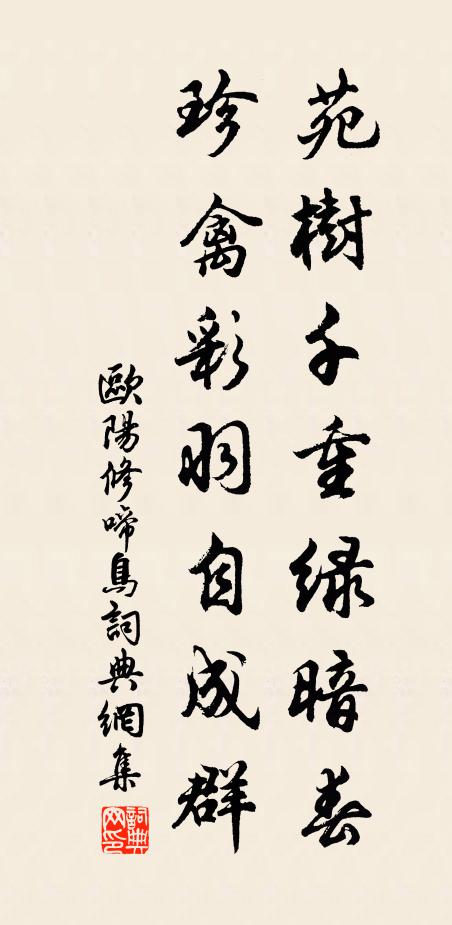 苑樹千重綠暗春
珍禽彩羽自成群
歐陽修啼鳥詞典網集
詞典網印